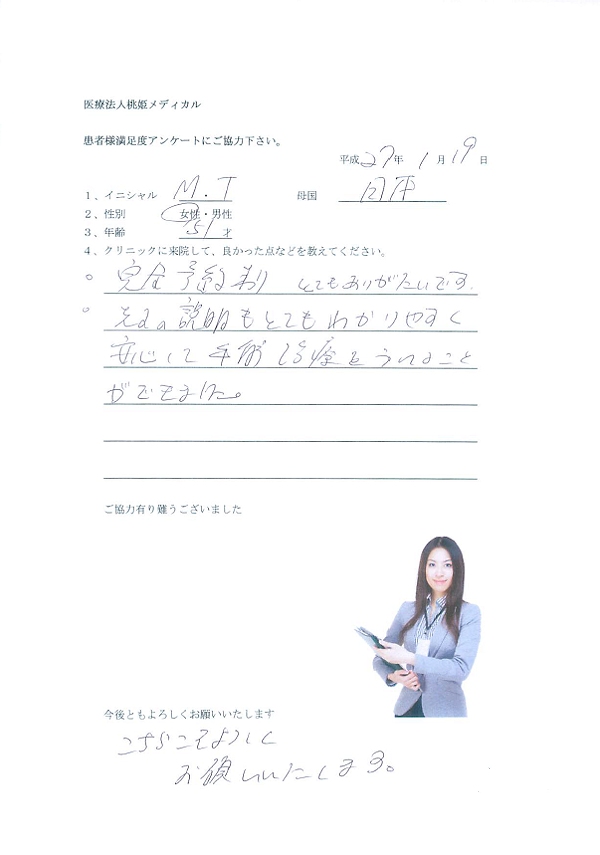 医療法人桃姫メディカル
患者様満足度アンケートにご協力下さい。
平成27年 1月19日
1、イニシャル M.T 母国 日本
2、性別 女性・男性
3、年齢 51才
4、クリニックに来院して、良かった点などを教えてください。
○ 完全予約制 とてもありがたいです.
○ 説明もとてもわかりやすく
安心して手術治療をうけること
ができました。
ご協力有り難うございました
今後ともよろしくお願いいたします
こちらこそよろしく
お願いいたします。